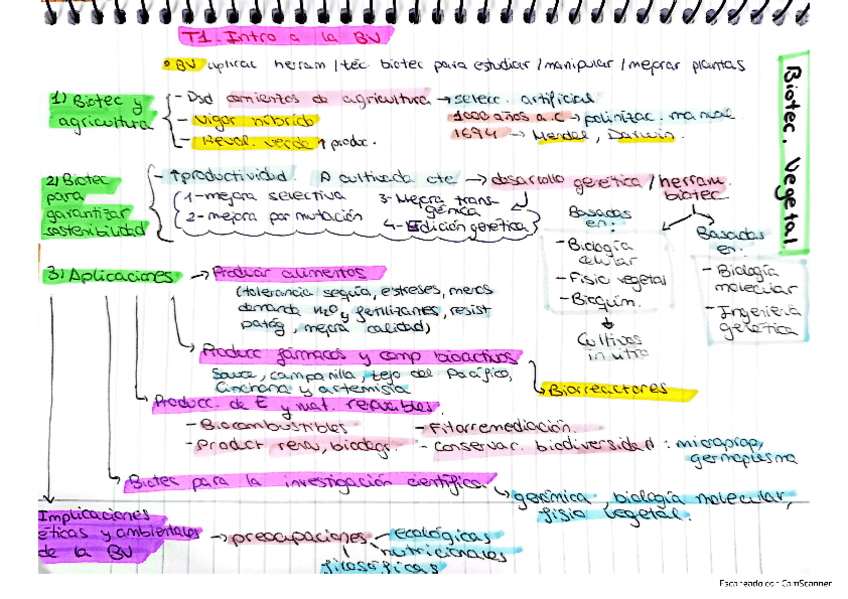 T1. Intro a la BV
BV aplicac herram / téc biotec para estudiar / manipular / mejorar plantas
Biotec. Vegetal
1) Biotec y agricultura
- Dsd comienzos de agricultura → selecc. artificial
1000 años a.C → polinizac. manual
1694 → Mendel, Darwin.
- Vigor híbrido
- Revol. verde ↑ produc.
2) Biotec para garantizar sostenibilidad
- ↑ productividad. cultivada cte → desarrollo genética / herram. biotec
1- mejora selectiva
2- mejora por mutación
3- Mejora transgénica
4- Edición genética
Basadas en:
- Biología celular
- Fisio vegetal
- Bioquím.
Cultivos in vitro
Basadas en:
- Biología molecular
- Ingeniería genética
3) Aplicaciones → Producir alimentos
(tolerancia sequía, estreses, menos
demanda H2O y fertilizantes, resist
patóg, mejora calidad)
Producc fármacos y comp bioactivos
Sauce, campanilla, tejo del Pacífico,
Cinchona y artemisia
Biorreactores
Producc. de E y mat. renovables.
- Biocombustibles
- Product renov, biodegr.
- Fitorremediación.
- conservar. biodiversidad: microprop, germoplasma
Biotec para la investigación científica
genómica, biología molecular,
fisio vegetal.
Implicaciones
éticas y ambientales
de la BV
→ preocupaciones
ecológicas
nutricionales
filosóficas
Escaneado con CamScanner